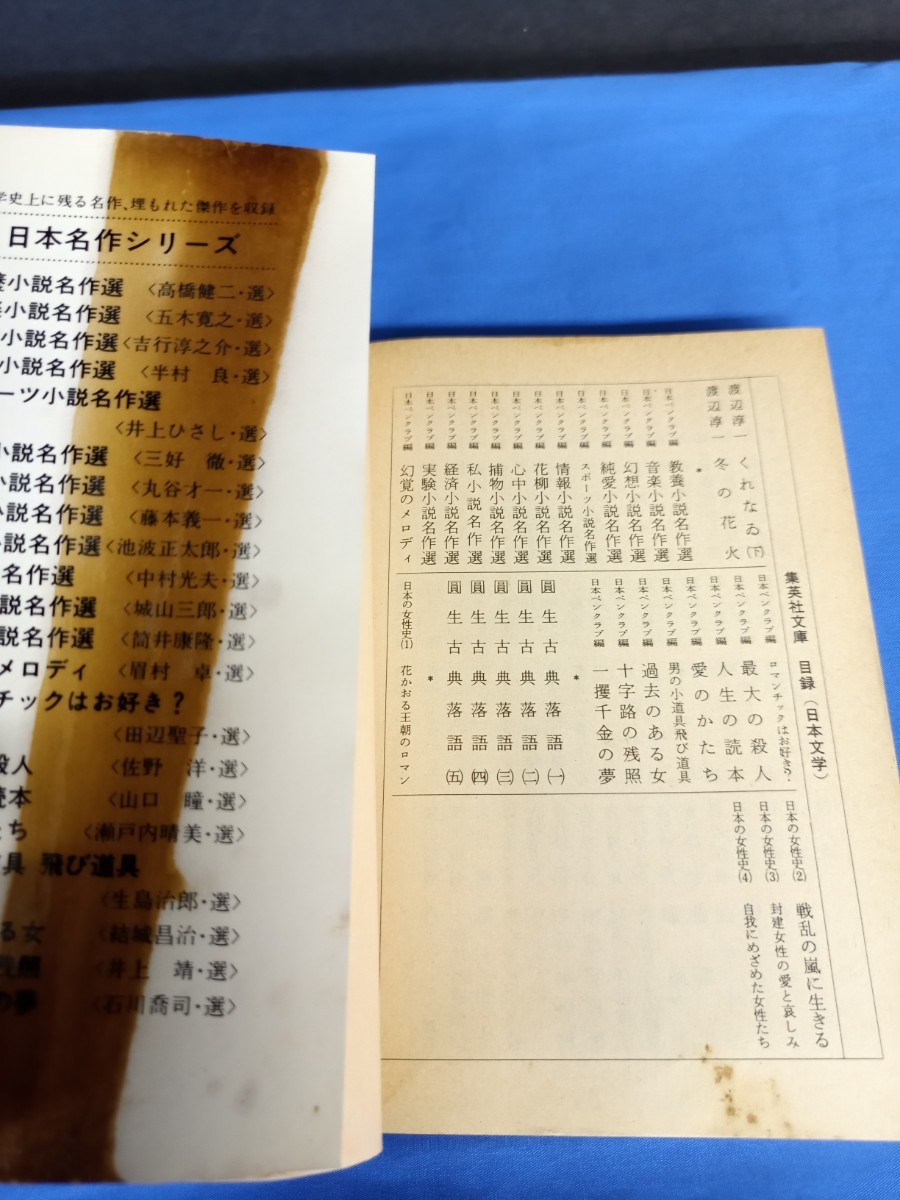 学史上に残る名作、埋もれた傑作を収録
日本名作シリーズ
小説名作選 〈高橋健二・選〉
小説名作選 〈五木寛之・選〉
小説名作選 〈吉行淳之介・選〉
小説名作選 〈半村 良・選〉
ーツ小説名作選
〈井上ひさし・選〉
小説名作選 〈三好 徹・選〉
小説名作選 〈丸谷才一・選〉
小説名作選 〈藤本義一・選〉
小説名作選 〈池波正太郎・選〉
名作選 〈中村光夫・選〉
説名作選 〈城山三郎・選〉
説名作選 〈筒井康隆・選〉
メロディ 〈眉村 卓・選〉
チックはお好き?
〈田辺聖子・選〉
殺人 〈佐野 洋・選〉
読本 〈山口 瞳・選〉
たち 〈瀬戸内晴美・選〉
道具 飛び道具
〈生島治郎・選〉
る女 〈結城昌治・選〉
残照 〈井上 靖・選〉
の夢 〈石川喬司・選〉
集英社文庫 目録(日本文学)
渡辺淳一 くれなゐ(下)
渡辺淳一 冬の花火
*
日本ペンクラブ編 教養小説名作選
日本ペンクラブ編 音楽小説名作選
日本ペンクラブ編 幻想小説名作選
日本ペンクラブ編 純愛小説名作選
日本ペンクラブ編 スポーツ小説名作選
日本ペンクラブ編 情報小説名作選
日本ペンクラブ編 花柳小説名作選
日本ペンクラブ編 心中小説名作選
日本ペンクラブ編 捕物小説名作選
日本ペンクラブ編 私小説名作選
日本ペンクラブ編 経済小説名作選
日本ペンクラブ編 実験小説名作選
日本ペンクラブ編 幻覚のメロディ
日本ペンクラブ編 ロマンチックはお好き?
日本ペンクラブ編 最大の殺人
日本ペンクラブ編 人生の読本
日本ペンクラブ編 愛のかたち
日本ペンクラブ編 男の小道具飛び道具
日本ペンクラブ編 過去のある女
日本ペンクラブ編 十字路の残照
日本ペンクラブ編 一攫千金の夢
*
圓生古典落語(一)
圓生古典落語(二)
圓生古典落語(三)
圓生古典落語(四)
圓生古典落語(五)
*
日本の女性史(1) 花かおる王朝のロマン
日本の女性史(2) 戦乱の嵐に生きる
日本の女性史(3) 封建女性の愛と哀しみ
日本の女性史(4) 自我にめざめた女性たち